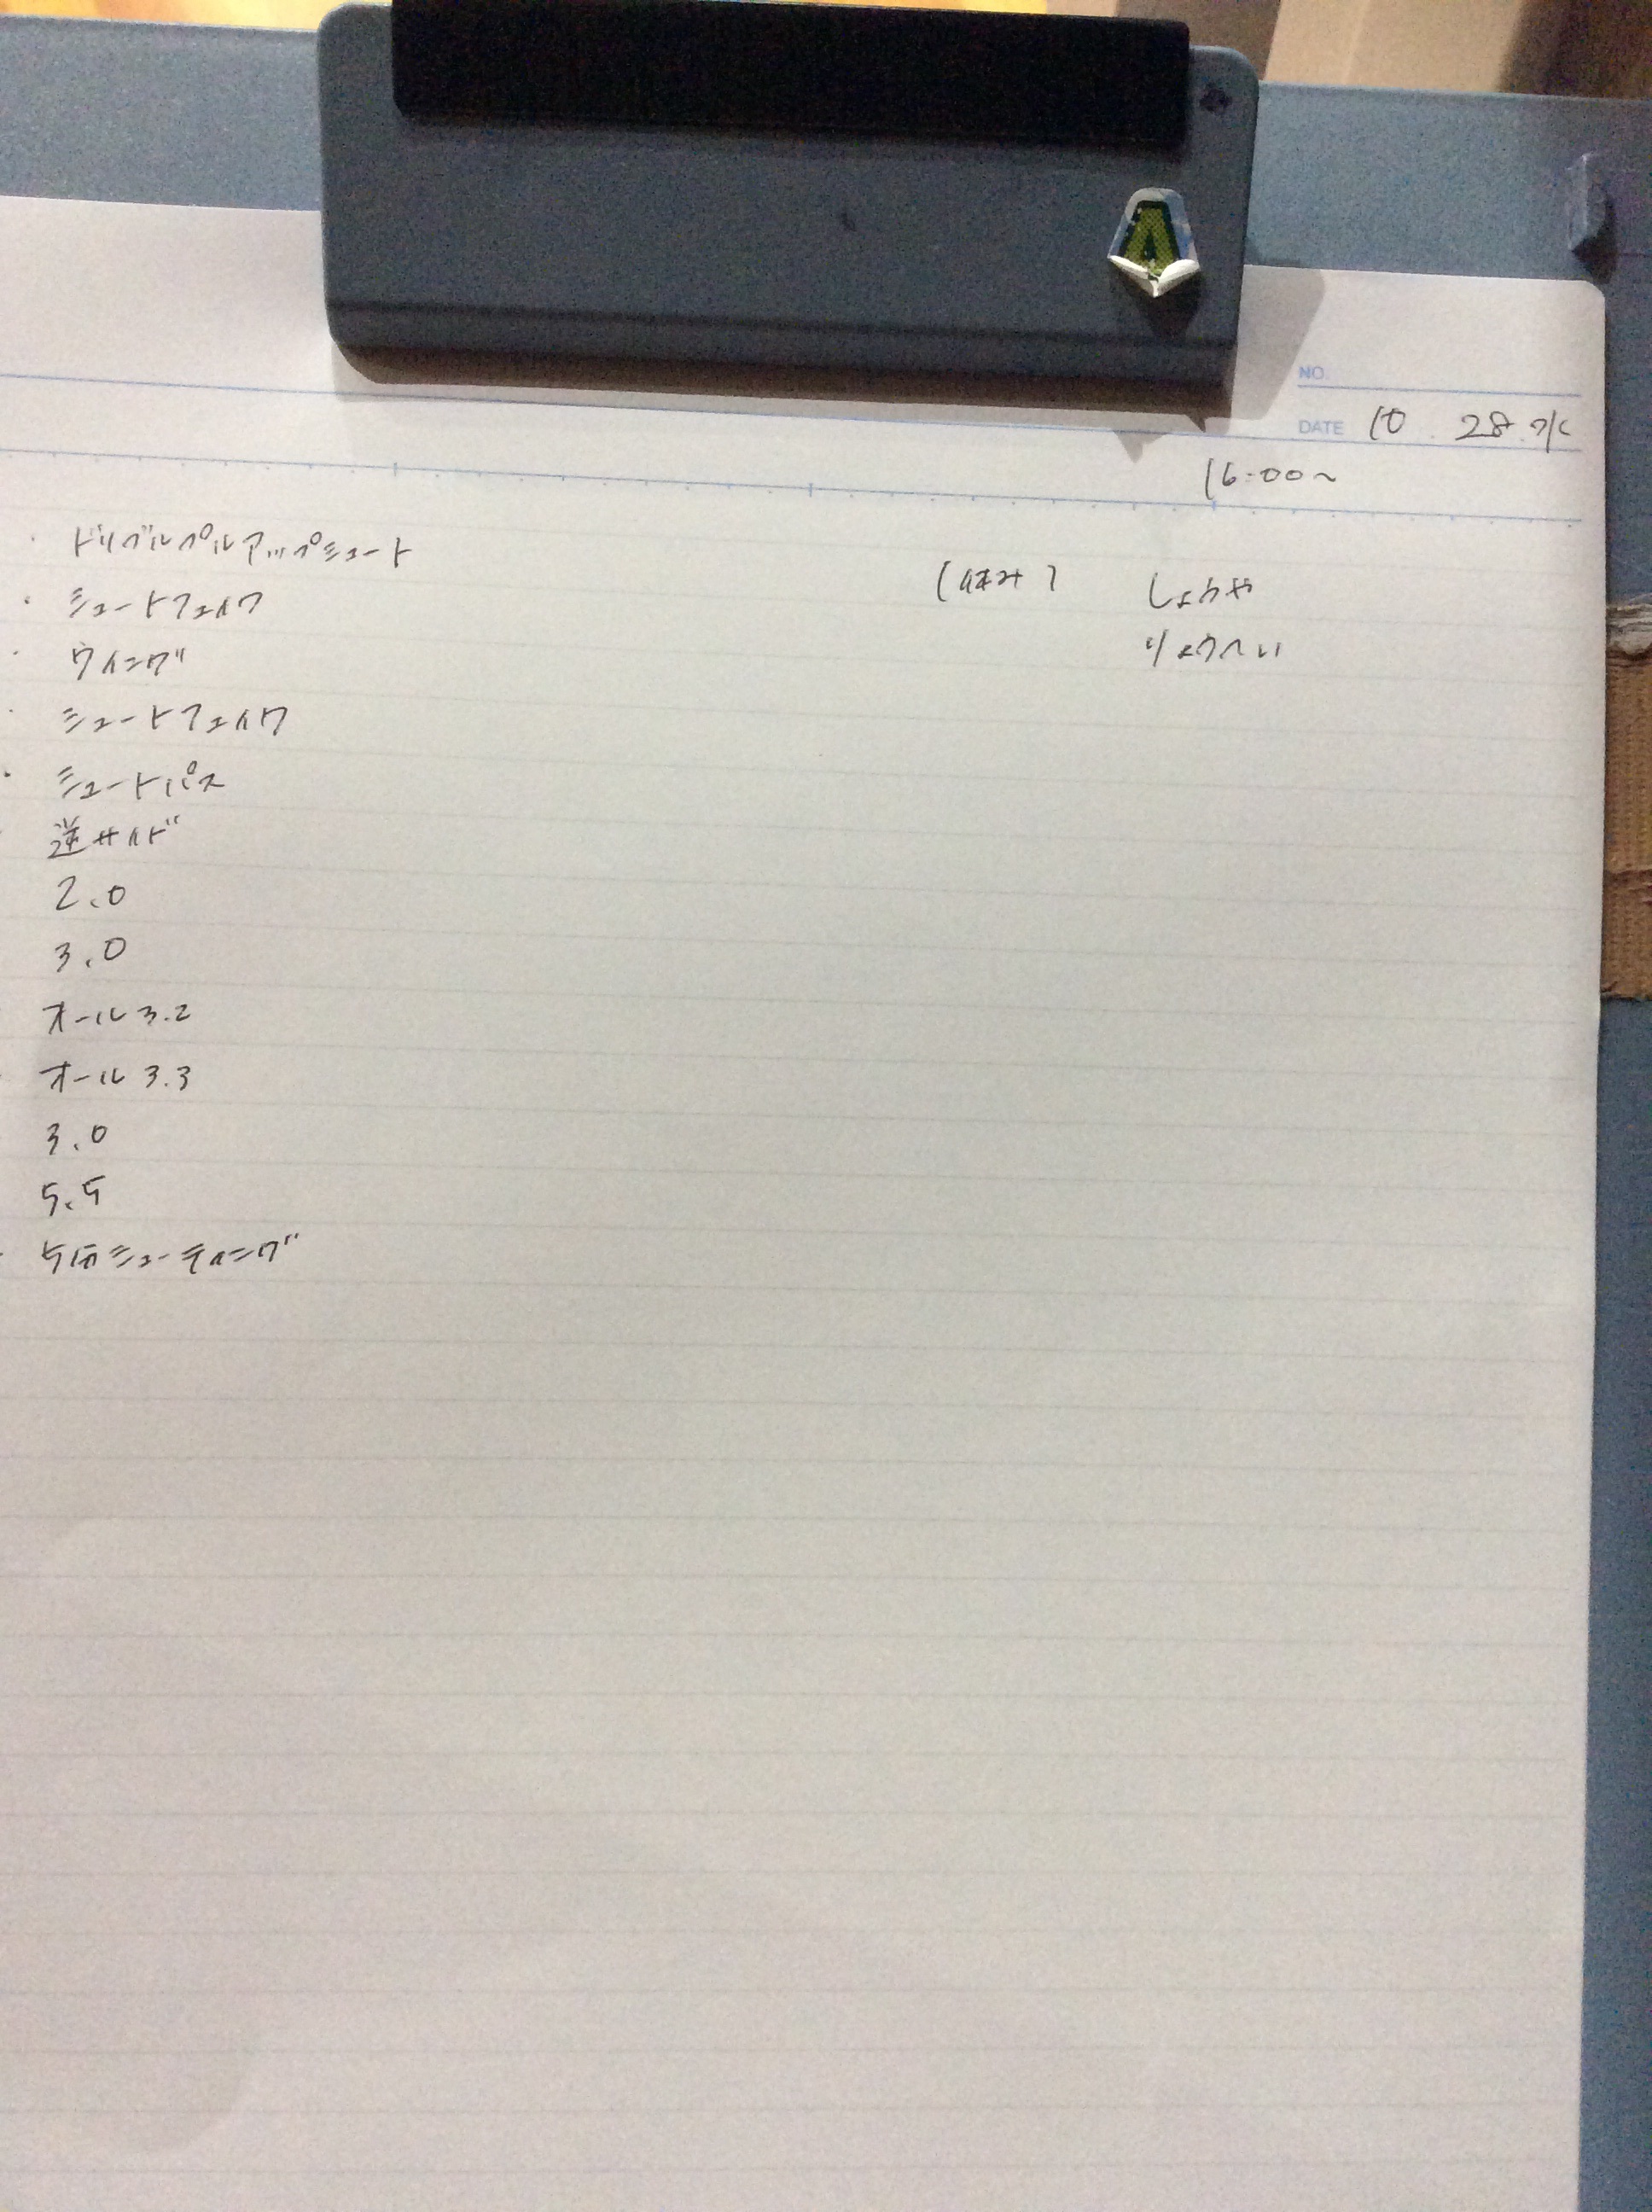 NO.
DATE 10 . 28 . 水
16:00〜
・ ドリブルプルアップシュート
・ シュートフェイク
・ ウイング
・ シュートフェイク
・ シュートパス
逆サイド
2.0
3.0
オール3.2
オール3.3
3.0
5.5
・ 5分シューティング
(休み)
しょうや
りょうへい